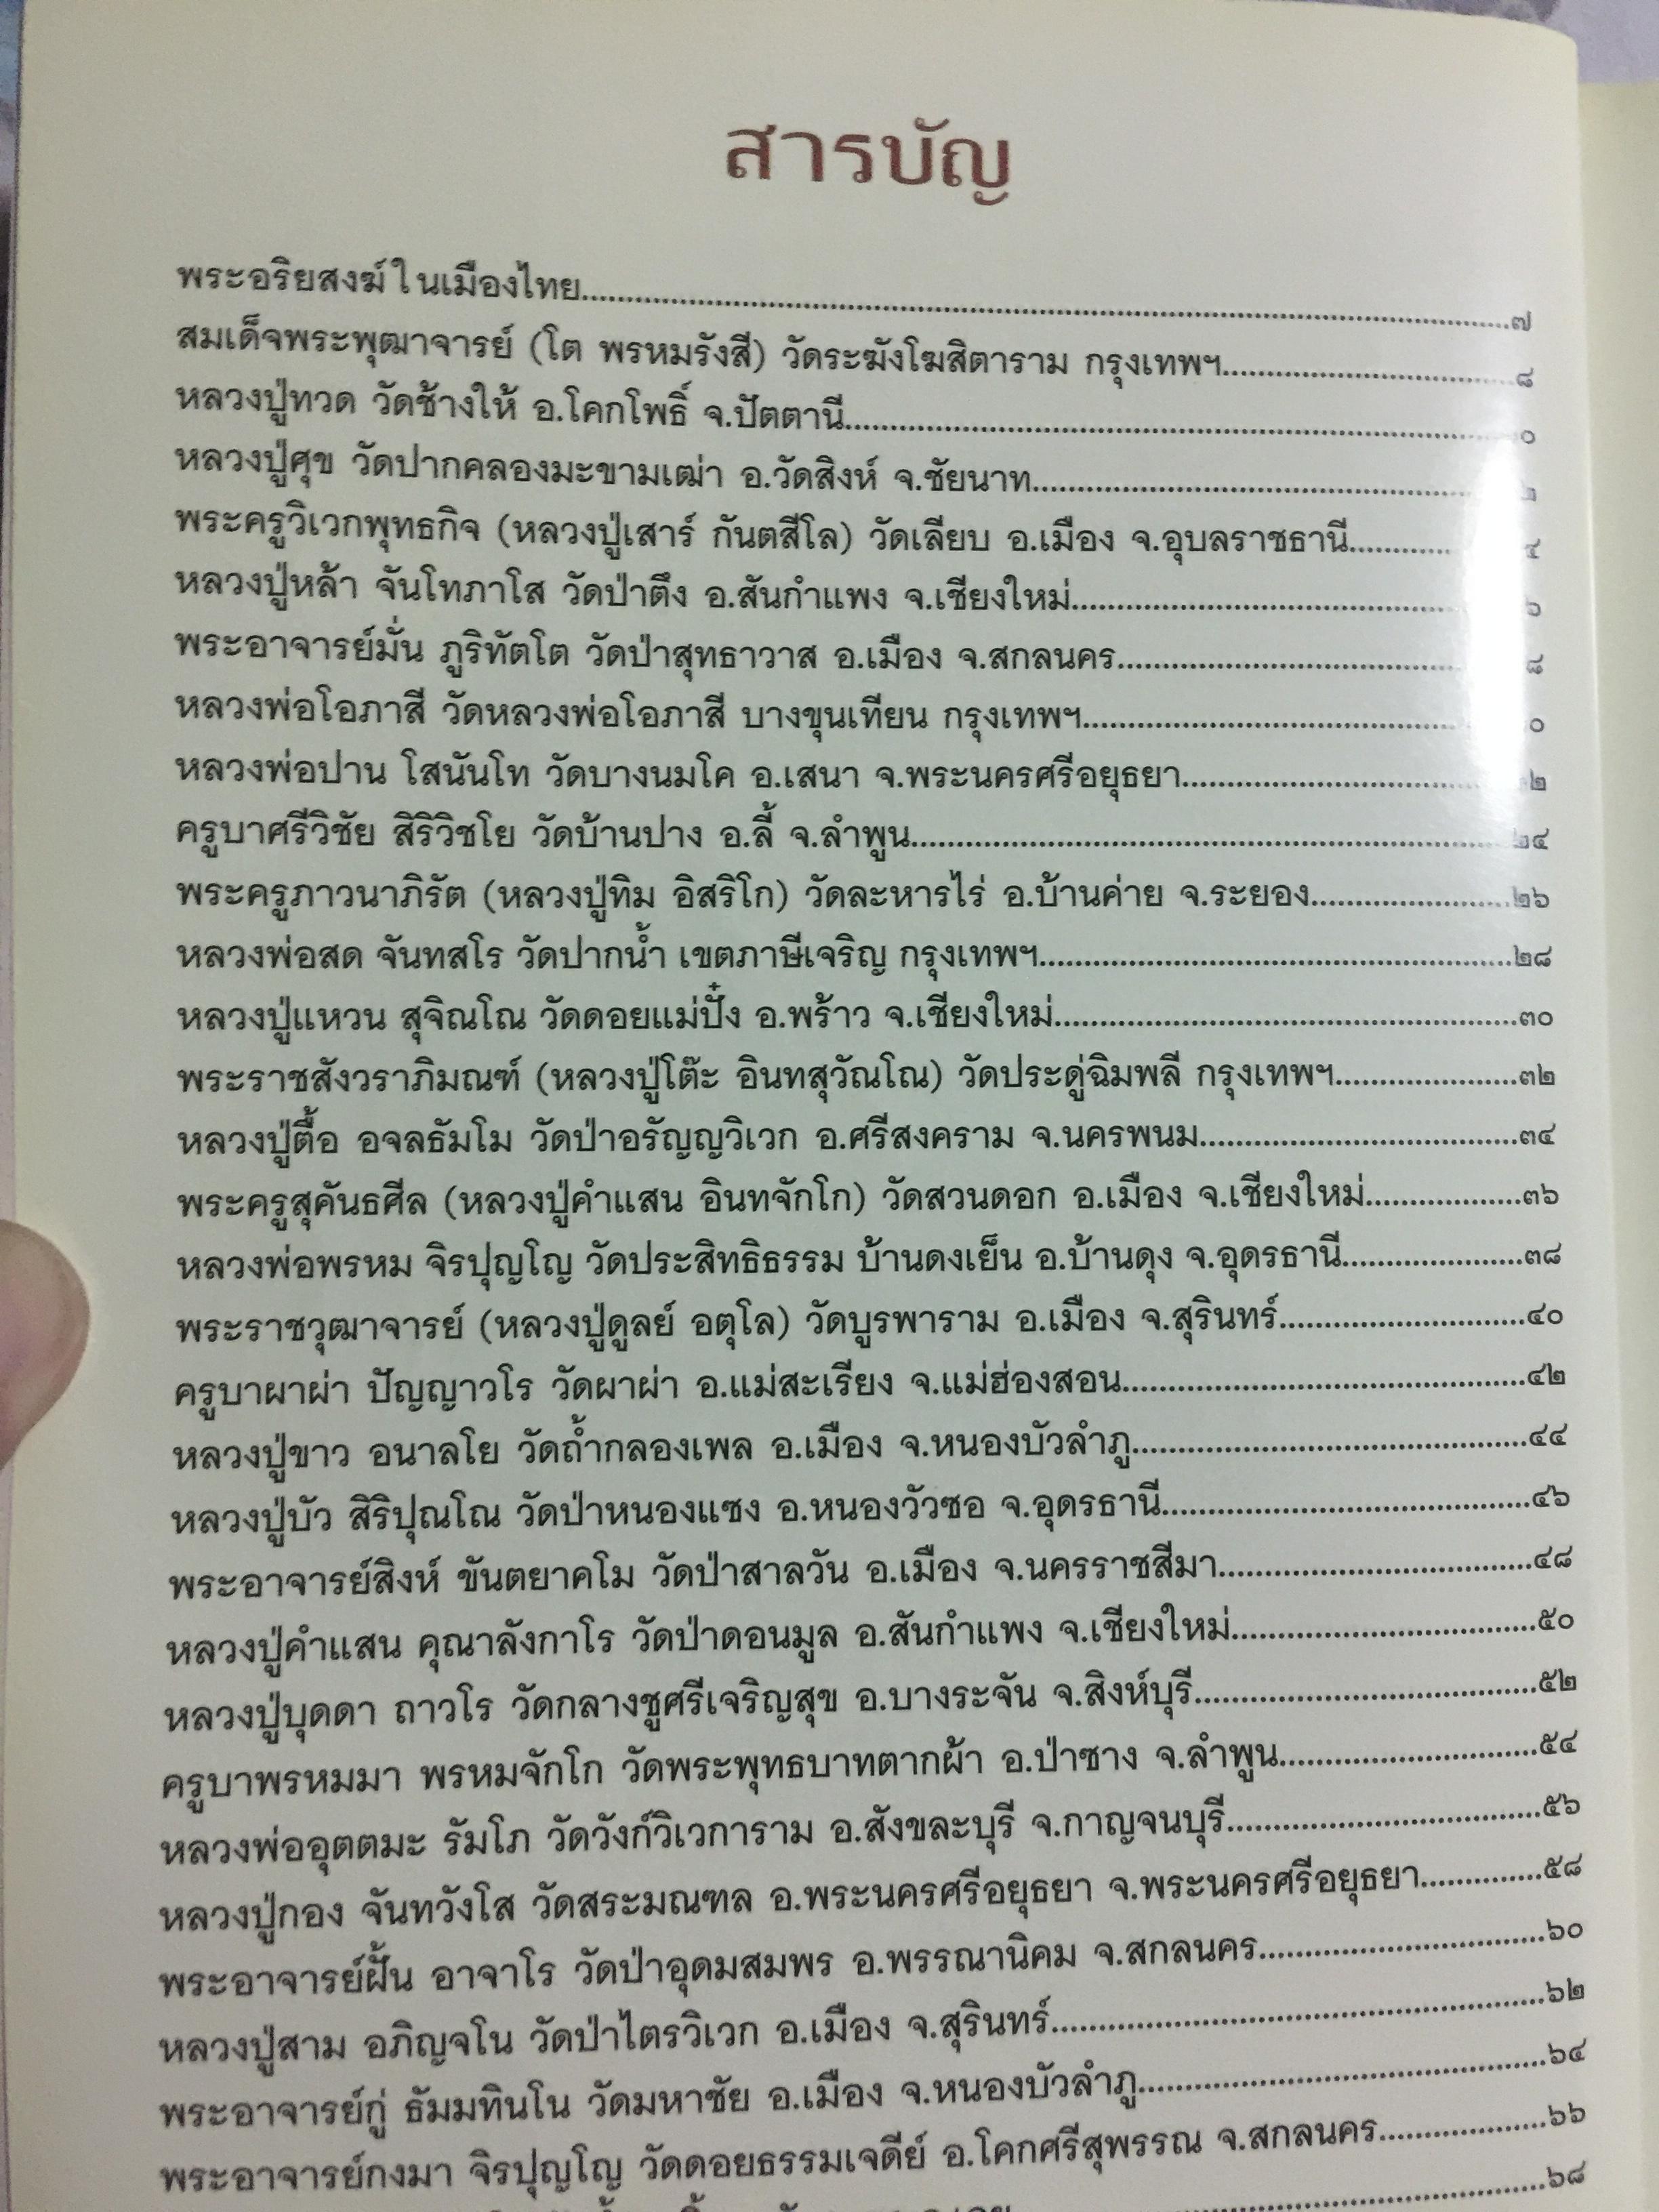 สารบัญ
พระอริยสงฆ์ในเมืองไทย..........๗
สมเด็จพระพุฒาจารย์ (โต พรหมรังสี) วัดระฆังโฆสิตาราม กรุงเทพฯ..........๘
หลวงปู่ทวด วัดช้างให้ อ.โคกโพธิ์ จ.ปัตตานี..........
หลวงปู่ศุข วัดปากคลองมะขามเฒ่า อ.วัดสิงห์ จ.ชัยนาท..........
พระครูวิเวกพุทธกิจ (หลวงปู่เสาร์ กันตสีโล) วัดเลียบ อ.เมือง จ.อุบลราชธานี..........
หลวงปู่หล้า จันโทภาโส วัดป่าตึง อ.สันกำแพง จ.เชียงใหม่..........
พระอาจารย์มั่น ภูริทัตโต วัดป่าสุทธาวาส อ.เมือง จ.สกลนคร..........
หลวงพ่อโอภาสี วัดหลวงพ่อโอภาสี บางขุนเทียน กรุงเทพฯ..........
หลวงพ่อปาน โสนันโท วัดบางนมโค อ.เสนา จ.พระนครศรีอยุธยา..........
ครูบาศรีวิชัย สิริวิชโย วัดบ้านปาง อ.ลี้ จ.ลำพูน..........๒๔
พระครูภาวนาภิรัต (หลวงปู่ทิม อิสริโก) วัดละหารไร่ อ.บ้านค่าย จ.ระยอง..........๒๖
หลวงพ่อสด จันทสโร วัดปากน้ำ เขตภาษีเจริญ กรุงเทพฯ..........๒๘
หลวงปู่แหวน สุจิณโณ วัดดอยแม่ปั๋ง อ.พร้าว จ.เชียงใหม่..........๓๐
พระราชสังวราภิมณฑ์ (หลวงปู่โต๊ะ อินทสุวัณโณ) วัดประดู่ฉิมพลี กรุงเทพฯ..........๓๒
หลวงปู่ตื้อ อจลธัมโม วัดป่าอรัญญวิเวก อ.ศรีสงคราม จ.นครพนม..........๓๔
พระครูสุคันธศีล (หลวงปู่คำแสน อินทจักโก) วัดสวนดอก อ.เมือง จ.เชียงใหม่..........๓๖
หลวงพ่อพรหม จิรปุญโญ วัดประสิทธิธรรม บ้านดงเย็น อ.บ้านดุง จ.อุดรธานี..........๓๘
พระราชวุฒาจารย์ (หลวงปู่ดูลย์ อตุโล) วัดบูรพาราม อ.เมือง จ.สุรินทร์..........๔๐
ครูบาผาผ่า ปัญญาวโร วัดผาผ่า อ.แม่สะเรียง จ.แม่ฮ่องสอน..........๔๒
หลวงปู่ขาว อนาลโย วัดถ้ำกลองเพล อ.เมือง จ.หนองบัวลำภู..........๔๔
หลวงปู่บัว สิริปุณโณ วัดป่าหนองแซง อ.หนองวัวซอ จ.อุดรธานี..........๔๖
พระอาจารย์สิงห์ ขันตยาคโม วัดป่าสาลวัน อ.เมือง จ.นครราชสีมา..........๔๘
หลวงปู่คำแสน คุณาลังกาโร วัดป่าดอนมูล อ.สันกำแพง จ.เชียงใหม่..........๕๐
หลวงปู่บุดดา ถาวโร วัดกลางชูศรีเจริญสุข อ.บางระจัน จ.สิงห์บุรี..........๕๒
ครูบาพรหมมา พรหมจักโก วัดพระพุทธบาทตากผ้า อ.ป่าซาง จ.ลำพูน..........๕๔
หลวงพ่ออุตตมะ รัมโภ วัดวังก์วิเวการาม อ.สังขละบุรี จ.กาญจนบุรี..........๕๖
หลวงปู่กอง จันทวังโส วัดสระมณฑล อ.พระนครศรีอยุธยา จ.พระนครศรีอยุธยา..........๕๘
พระอาจารย์ฝั้น อาจาโร วัดป่าอุดมสมพร อ.พรรณานิคม จ.สกลนคร..........๖๐
หลวงปู่สาม อภิญจโน วัดป่าไตรวิเวก อ.เมือง จ.สุรินทร์..........๖๒
พระอาจารย์กู่ ธัมมทินโน วัดมหาชัย อ.เมือง จ.หนองบัวลำภู..........๖๔
พระอาจารย์กงมา จิรปุญโญ วัดดอยธรรมเจดีย์ อ.โคกศรีสุพรรณ จ.สกลนคร..........๖๖
๖๘